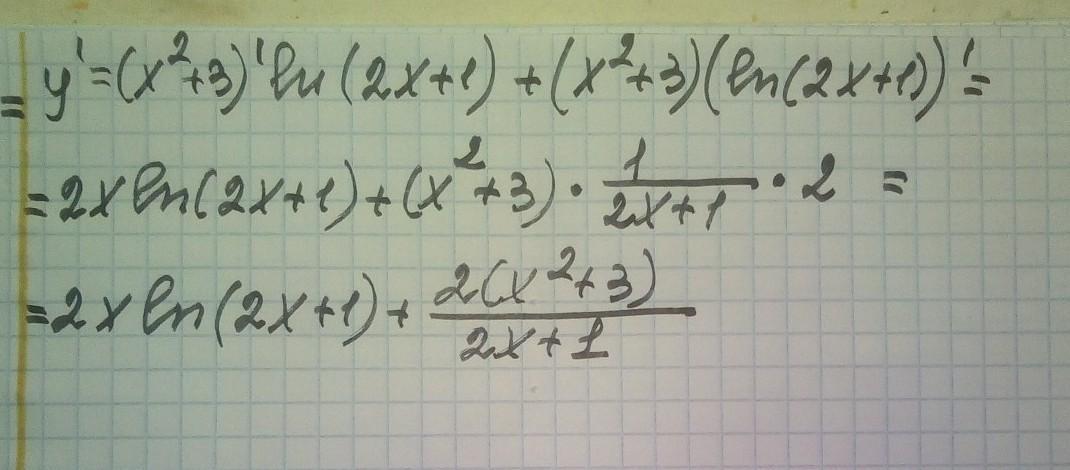 = y' = (x²+3)' ln(2x+1) + (x²+3)(ln(2x+1))' =
= 2x ln(2x+1) + (x²+3) · 1/(2x+1) · 2 =
= 2x ln(2x+1) + 2(x²+3)/(2x+1)